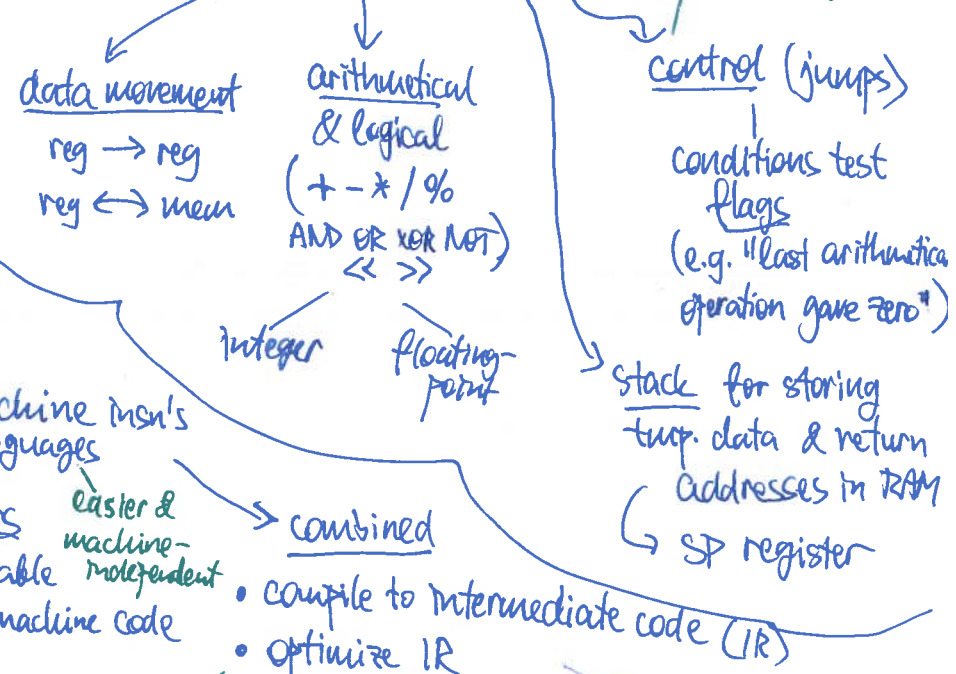 data movement
reg → reg
reg ↔ mem
arithmetical
& logical
(+ - * / %
AND OR XOR NOT)
<< >>
integer
floating-
point
control (jumps)
conditions test
flags
(e.g. "last arithmetica
operation gave zero")
stack for storing
tmp. data & return
addresses in RAM
SP register
chine insn's
guages
easier &
machine-
independent
s
able
machine code
combined
• compile to intermediate code (IR)
• optimize IR